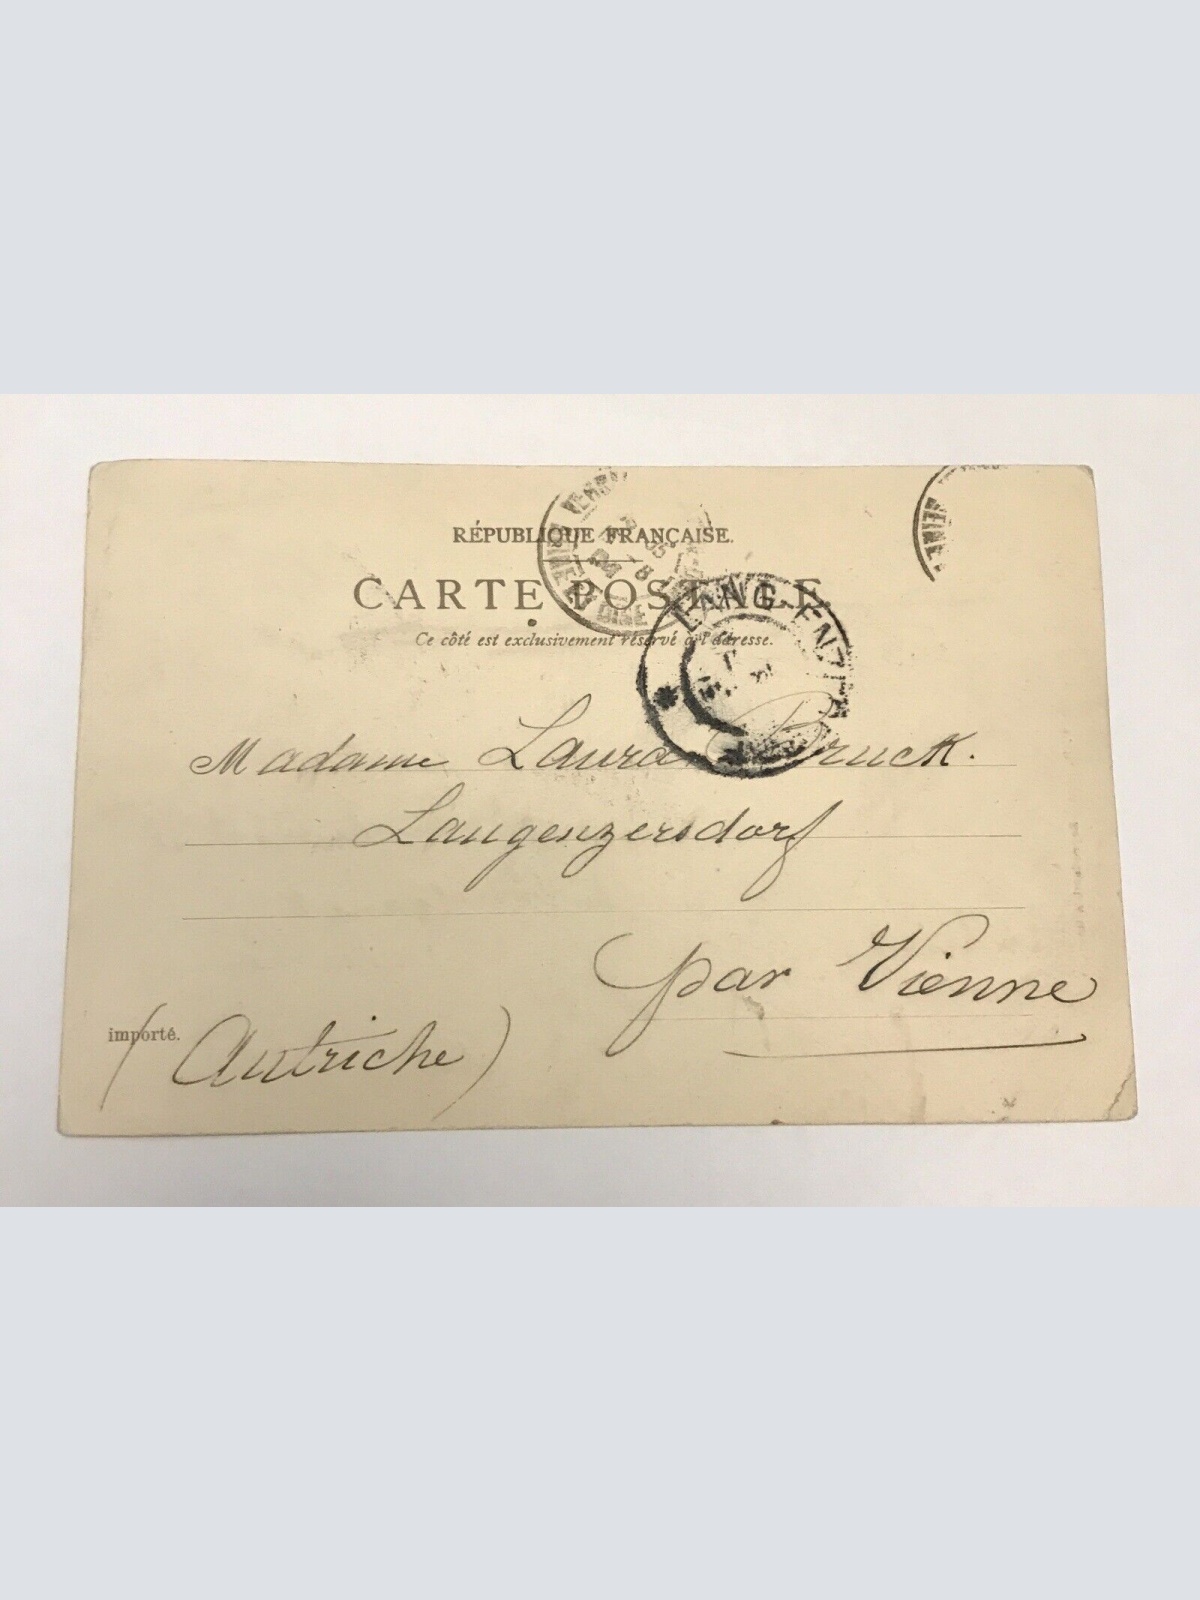 RÉPUBLIQUE FRANÇAISE.
CARTE POSTALE
Ce côté est exclusivement réservé à l'adresse.
LANG-ENZ
SEINE
Madame Laura Bruck.
Langenzersdorf
par Vienne
importé.
(Autriche)